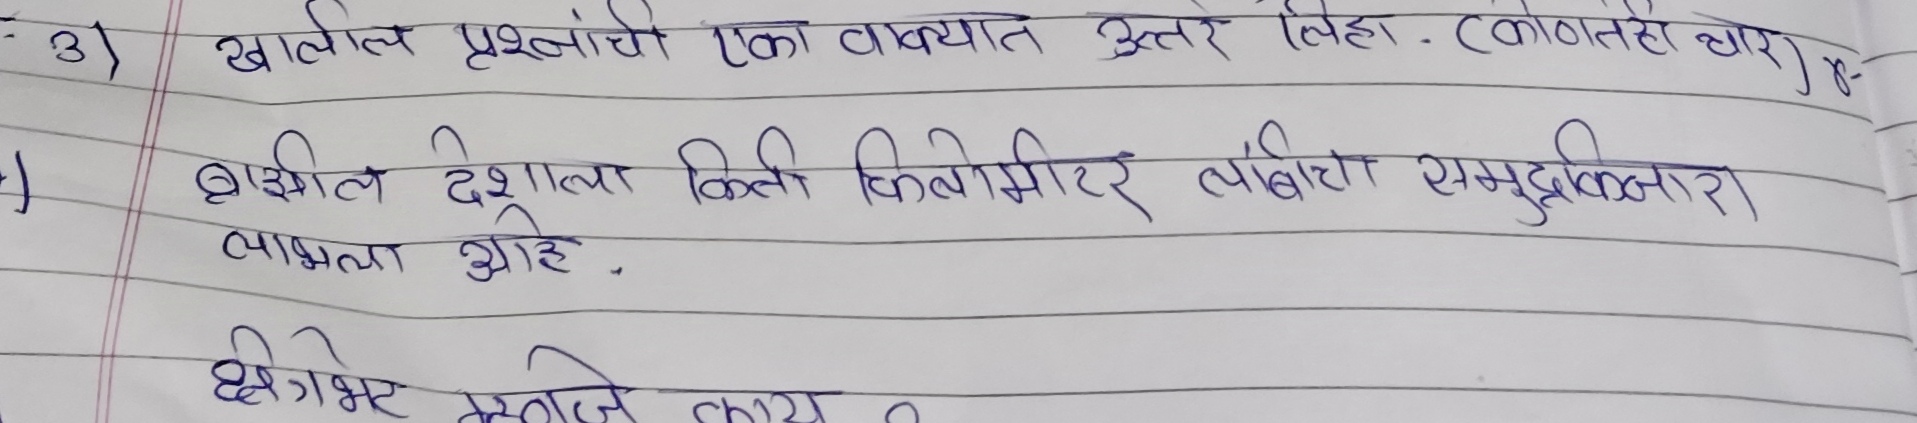 3) खालील प्रश्नांची एका वाक्यात उत्तरे लिहा. (कोणतेही चार) ४-
) ब्राझील देशाला किती किलोमीटर लांबीचा समुद्रकिनारा
लाभला आहे.
क्षेत्रभेट म्हणजे काय ?